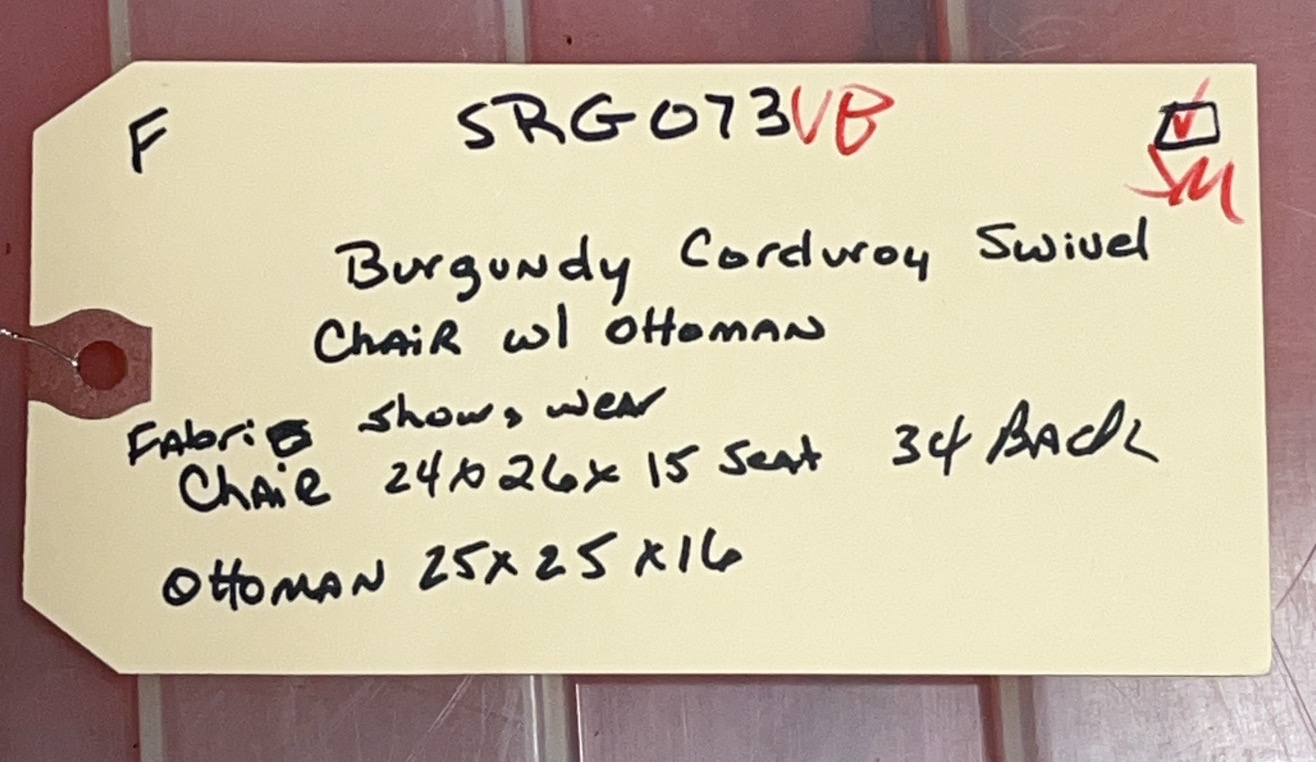 F SRG073VB ☑
SM
Burgundy Corduroy Swivel
Chair w/ Ottoman
Fabric shows wear
Chair 24x26x15 Seat 34 Back
Ottoman 25x25x16